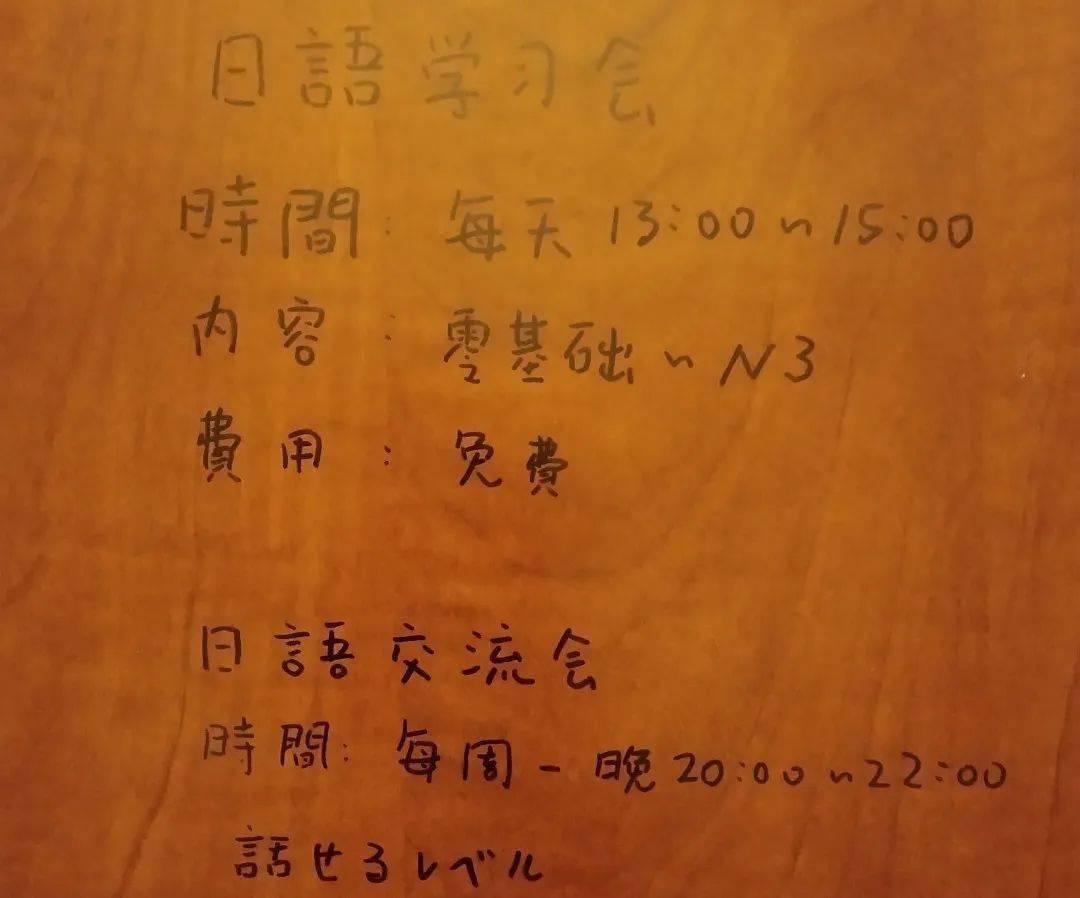 日語学习会
時間：每天 13:00~15:00
内容：零基础~N3
費用：免費
日語交流会
時間：每周一晚20:00~22:00
話せるレベル